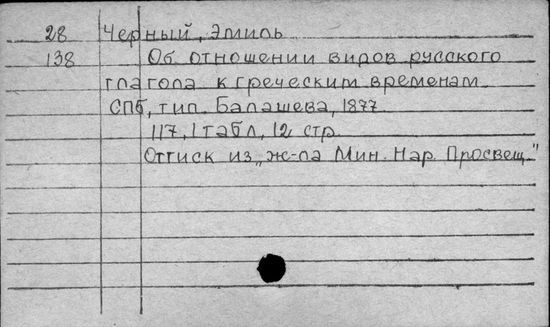 28 Черный, Эмиль
138 Об отношении видов русского
глагола к греческим временам.
СПб, тип. Балашева, 1877
117, 1 табл, 12 стр.
Оттиск из „ж-ла Мин. Нар. Просвещ."